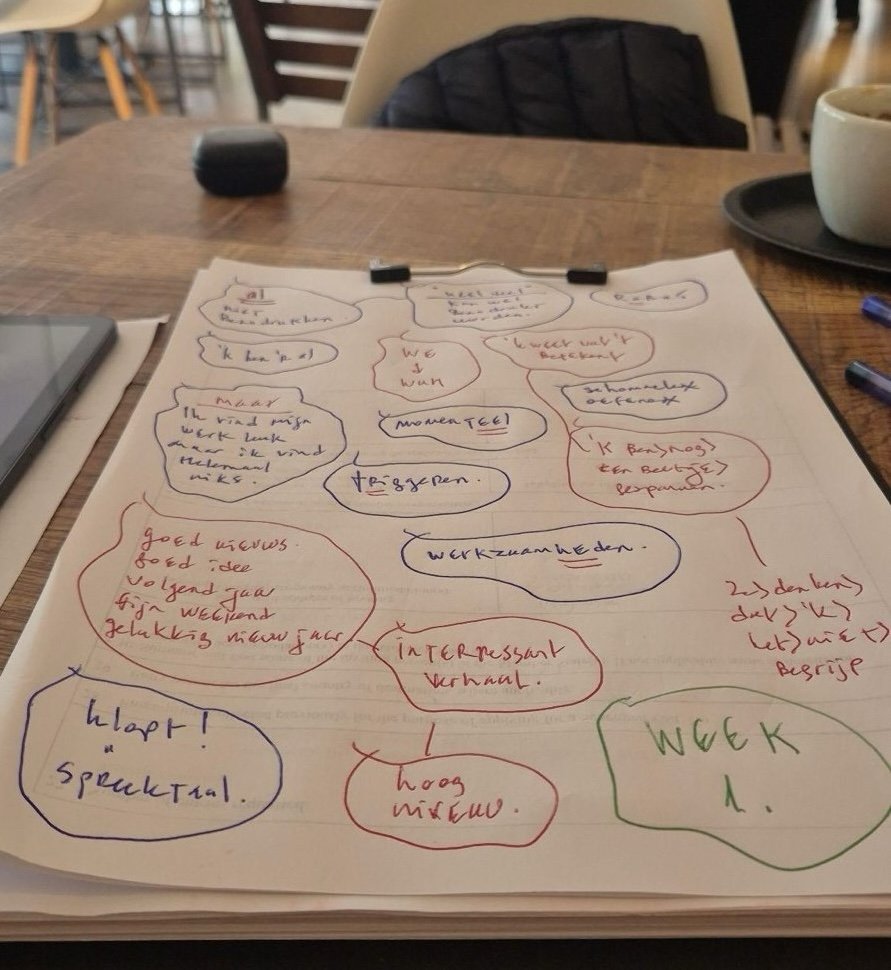 al
niet
Benadrukken
"heel veel"
kan wel
Benadrukt
worden.
'k ben 'r al
WE
↓
wah
'k weet wat 't
Betekent
maar
Ik vind mijn
werk leuk
maar ik vind
Helemaal
niks.
momenTEEl
'k Ben>nog>
een Beetje>
gespannen.
triggeren.
werkzaamhEden.
goed nieuws.
goed idee
volgend jaar
fijn weekend
gelukkig nieuwjaar
Ze>denken>
dat>'k>
het>niet>
Begrijp
inTERessant
verhaal.
klopt!
"
spreekTaal.
hoog
niveau.
WEEK
1.